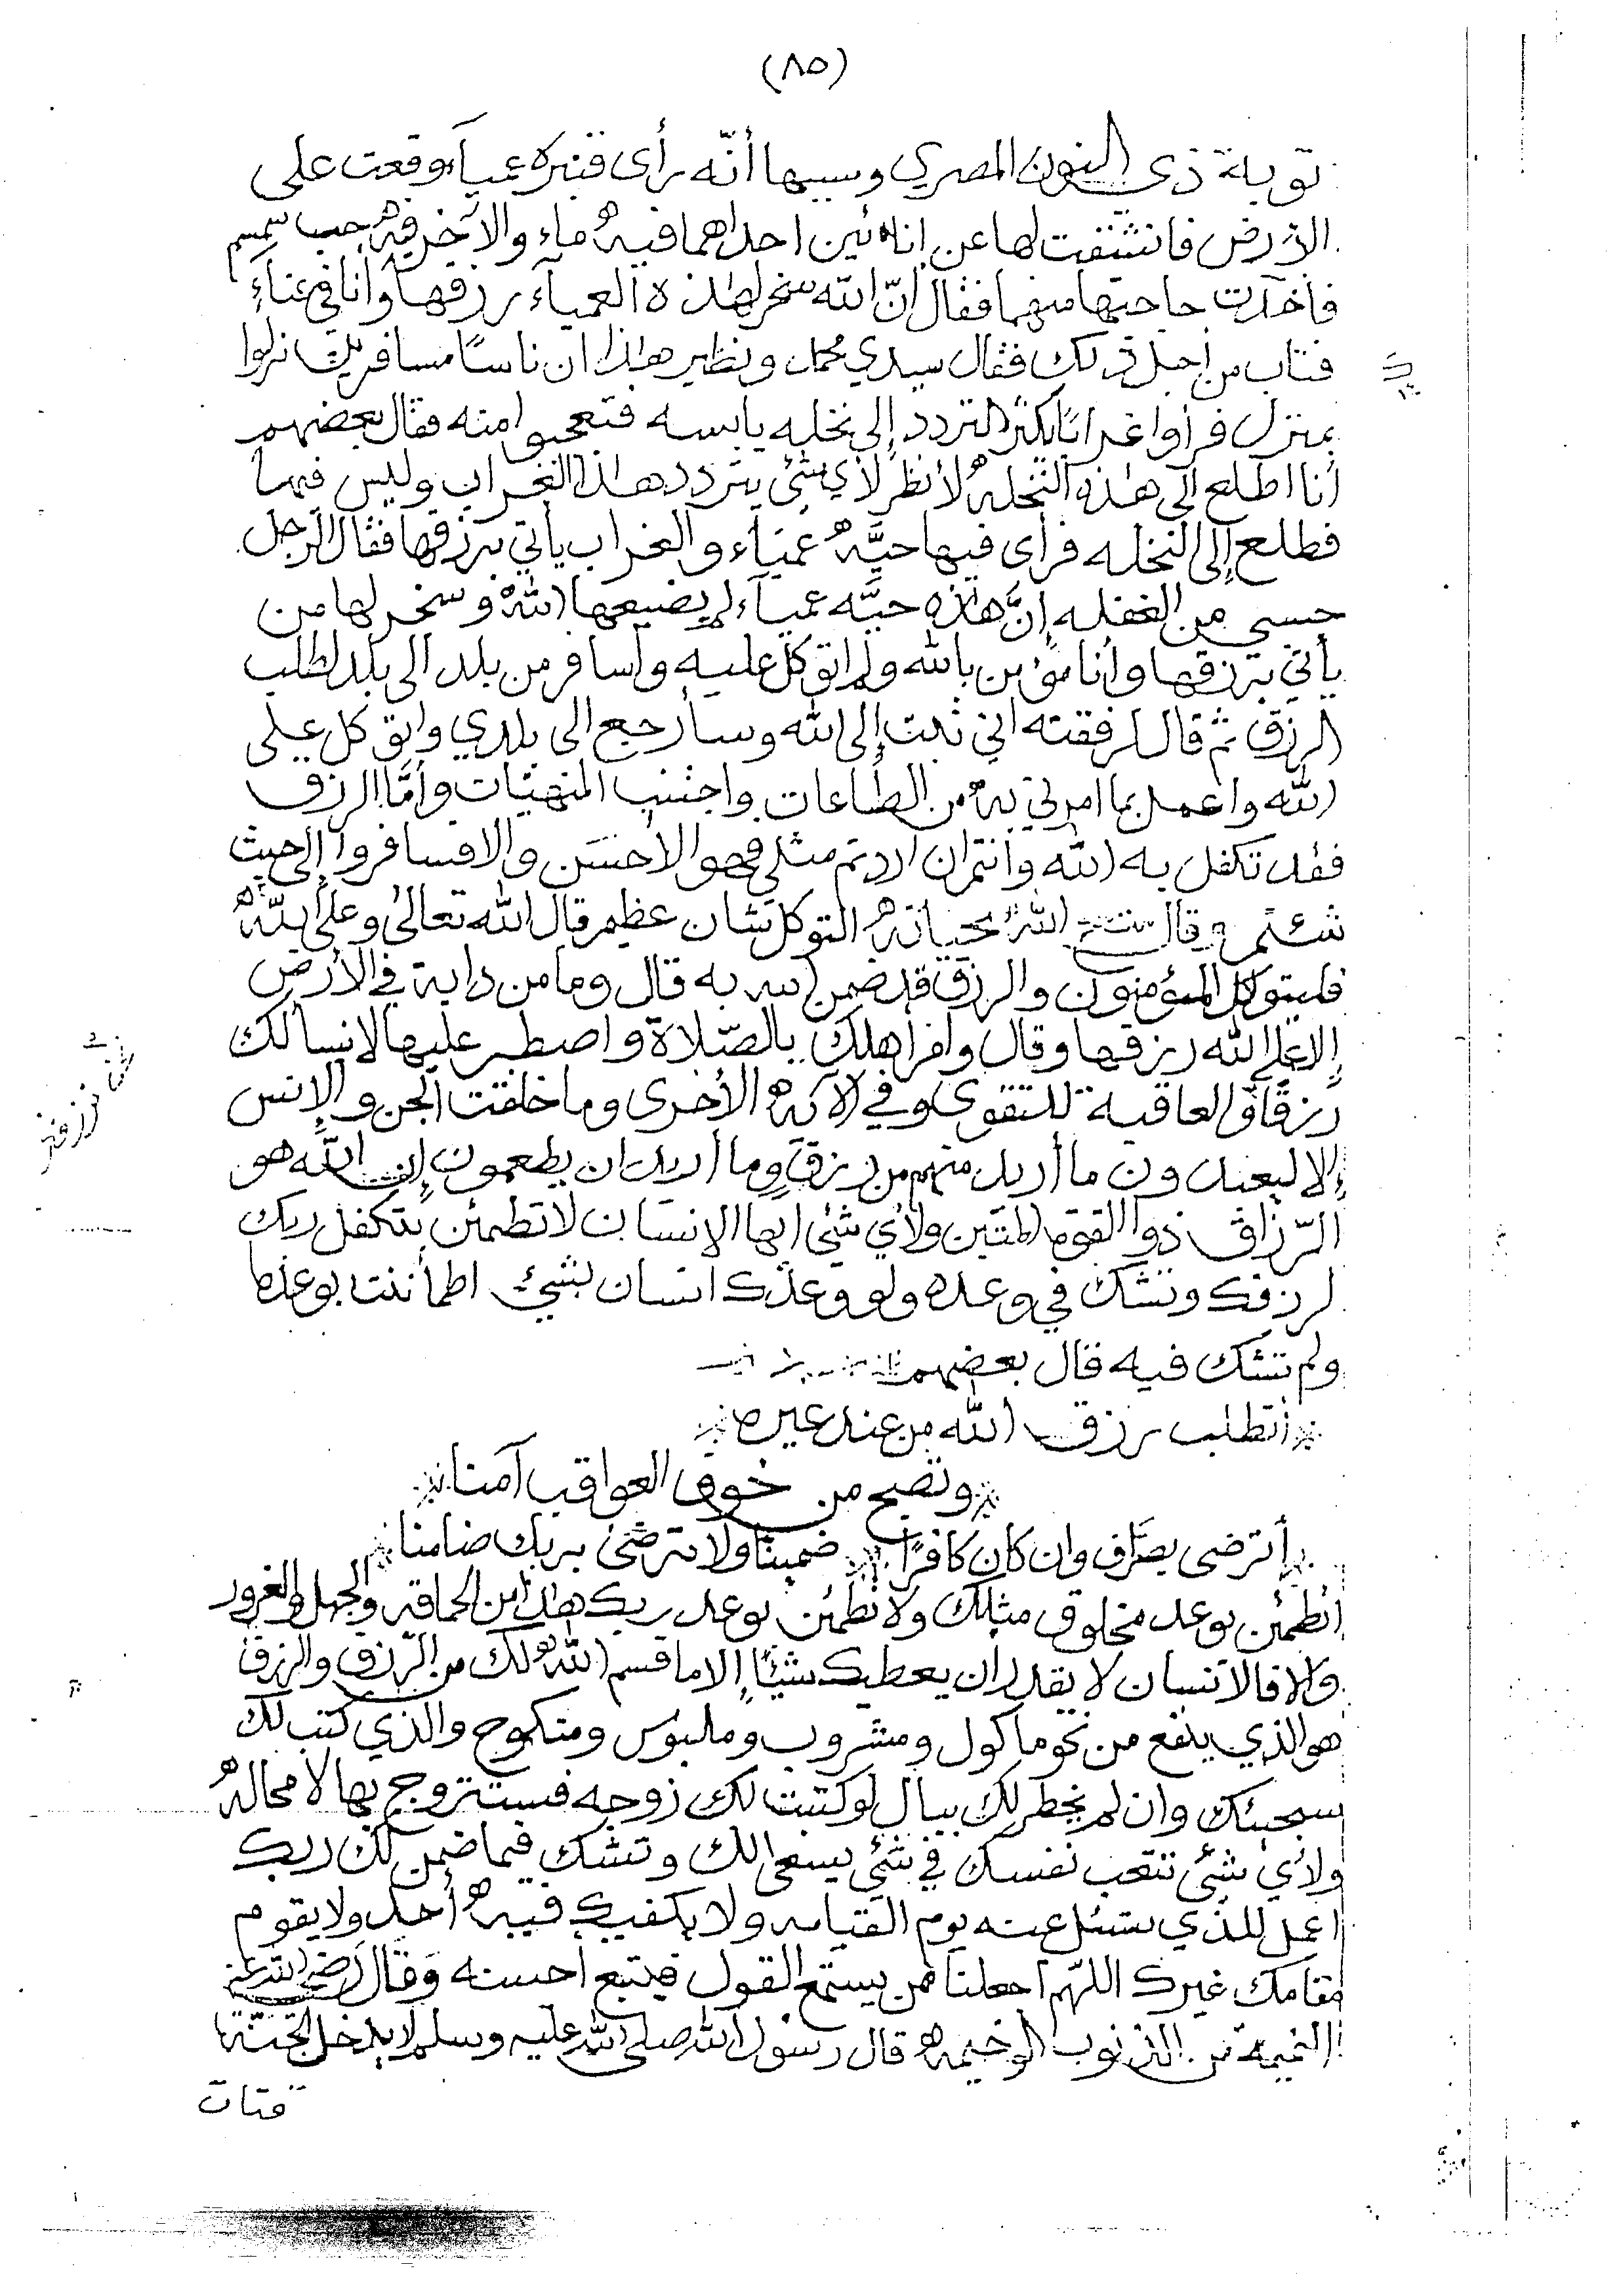 (٨٥)
توبة ذي النون المصري وسببها أنّه رأى قنبره عمياء وقعت على
الأرض فانشقت لها عن إناءين احداهما فيه ماء والآخر فيه حب سمسم
فاخذت حاجتها منهما فقال انّ الله سخر لهذه العمياء رزقها وأنا في عناء
فتاب من أجل ذلك فقال سيدي محمد ونظير هذا ان ناسًا مسافرين نزلوا
بمنزل فرأوا غرابًا يكثر التردد إلى نخله يابسه فتعجبوا منه فقال بعضهم
أنا اطلع الى هذه النخلة لأنظر لأي شئ يتردد هذا الغراب وليس فيها
فطلع إلى النخله فرأى فيها حيَّة عمياء والغراب يأتي برزقها فقال الرجل
حسبي من الغفله إنَّ هذه حيَّه عمياء لم يضيعها الله وسخر لها من
يأتي برزقها وأنا مؤمن بالله ولم اتوكل عليه وأسافر من بلد الى بلد لطلب
الرزق ثم قال لرفقته اني تبت إلى الله وسأرجع الى بلدي واتوكل على
الله واعمل بما امرني به من الطاعات واجتنب المنهيات وأمَّا الرزق
فقد تكفل به الله وانتم ان اردتم مثلي فهو الأحسَن والا فسافروا إلى حيث
شئتم وقال الله بحياته التوكل شان عظيم قال الله تعالى وعلى الله
فليتوكل المؤمنون والرزق قد ضمن الله به قال وما من دابة في الأرض
إلا على الله رزقها وقال وامر اهلك بالصّلاة واصطبر عليها لا نسالك
رزقًا والعاقبة للتقوى وفي الآية الأخرى وما خلقت الجن والإنس
إلا ليعبدون ما أريد منهم من رزقٍ وما أريد ان يطعمون إن الله هو
الرّزاق ذوا القوة المتين ولأي شئ ايها الإنسان لا تطمئن بتكفل ربك
لرزقك وتشك في وعده ولو وعدك انسان بشيئ اطمأننت بوعده
ولم تشك فيه قال بعضهم
أتطلب رزق الله من عند غيره
وتصبح من خوف العواقب آمنا
أترضى بصرَّاف وان كان كافرًا ضمينا ولا ترضى بربك ضامنا
أتطمئن بوعد مخلوق مثلك ولا تطمئن بوعد ربك هذا من الحماقه والجهل والغرور
والا فالانسان لا يقدر ان يعطيك شيئًا إلا ما قسم الله لك من الرّزق والرزق
هو الذي ينفع من نحو مأكول ومشروب وملبوس ومنكوح والذي كتب لك
سيجيئك وان لم يخطر لك ببال لو كتبت لك زوجه فستتزوج بها لا محالة
ولأي شئ تتعب نفسك في شئ يسعى لك وتشك فيما ضمن لك ربك
اعمل للذي تسئل عنه يوم القيامه ولا يكفيك فيه أحد ولا يقوم
مقامك غيرك اللهّم اجعلنا ممن يستمع القول فيتبع احسنه وقال رضي الله عنه
النميمة من الذنوب الوخيمة قال رسول الله صلى الله عليه وسلم لا يدخل الجنّة
قتات